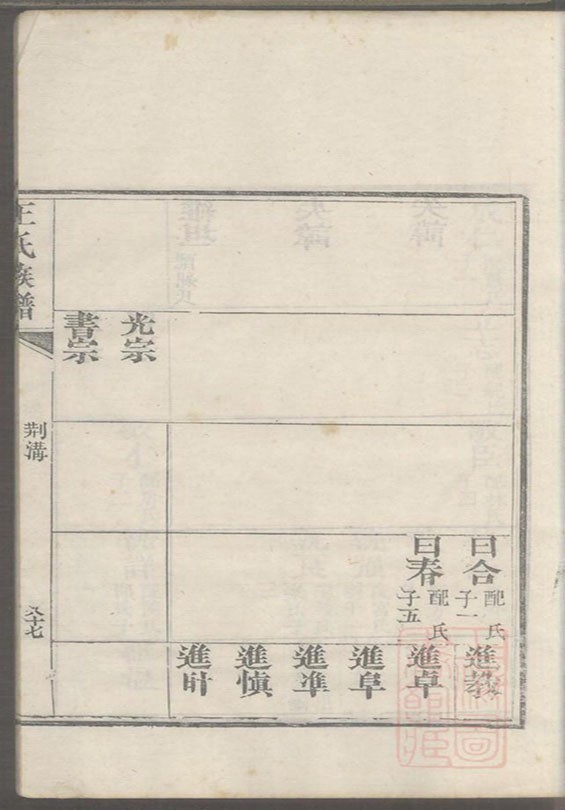 曰合
配 氏
子一
曰春
配 氏
子五
進教
進卓
進阜
進準
進慎
進旪
光宗
書宗
王氏族譜
荆溝